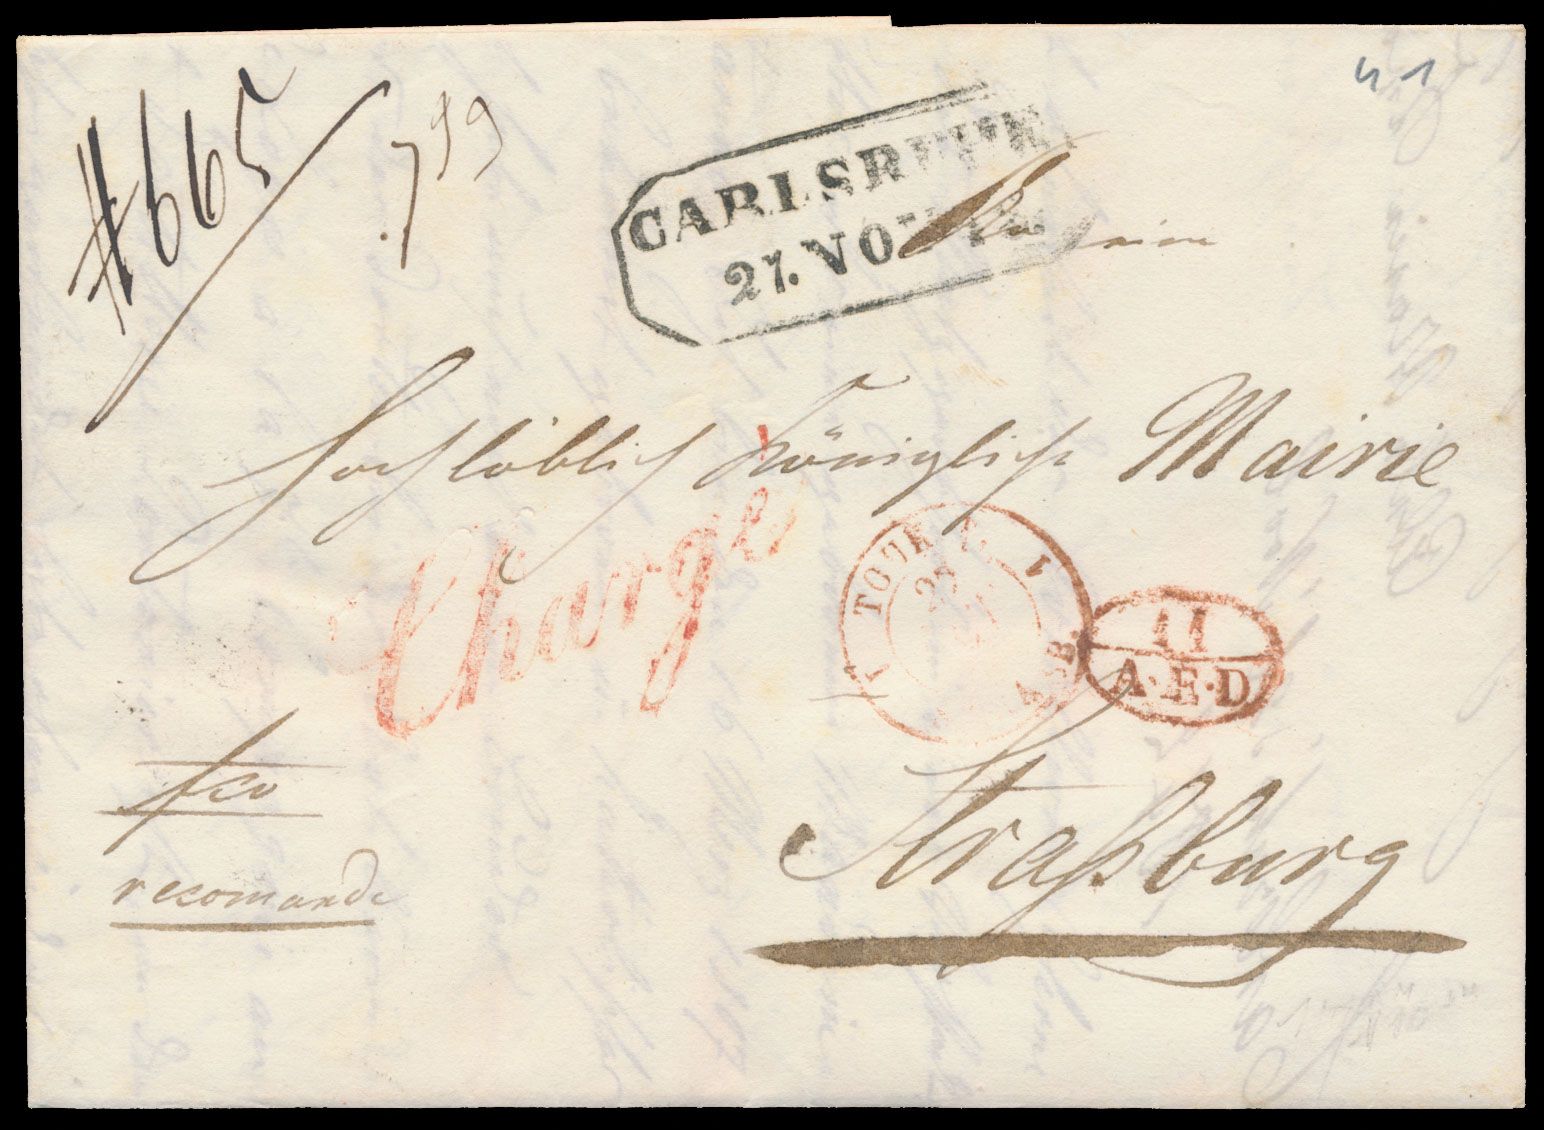 #665
799
41
CARLSRUHE
27. NOV
Hochlöblich Königliche Mairie
Chargé
TOUR
11
A·E·D
fco
Straßburg
recomandé